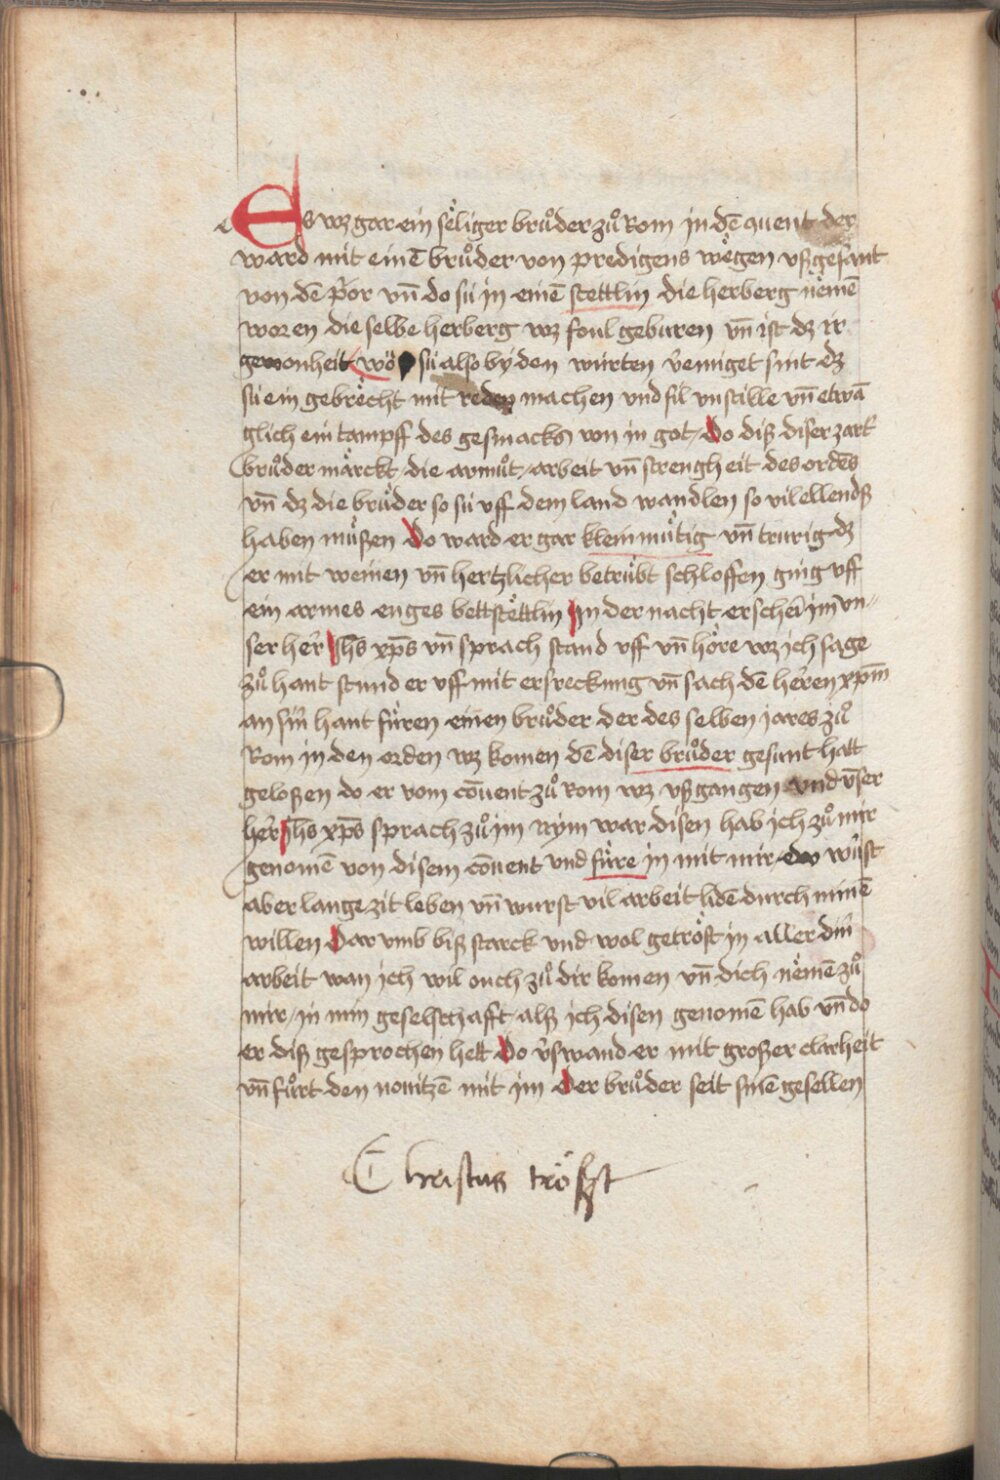 Es wz gar ein sẻliger bruͦder zuͦ Rom in dē ꝯuent der
ward mit einē bruͦder von predigens wegen vßgesant
von dē p̄or vn̄ do sü in einē stettlin die herberg nemē
woren die selbe herberg wz foul geburen vn̄ ist dz ir
gewonheit wo sü also by den würten v̄einiget sint dz
sü ein gebrecht mit reden machen vnd fil vnstille vn̄ etwā
glich ein tampff des gesmacks von in got / Do diß diser zart
bruͦder marckt die armuͦt / arbeit vn̄ strengheit des ordēs
vn̄ dz die bruͤder so sü vff dem land wandlen so vil ellendß
haben muͤßen Do ward er gar kleinmuͤtig vn̄ trurig dz
er mit weinen vn̄ hertzlicher betruͤbt schloffen ging vff
ein armes enges bettstettlin In der nacht erschei im vn„
ser her̄ Ihs xp̄s vn̄ sprach stand vff vn̄ höre wz ich sage
zuͦ hant stund er vff mit ersreckung vn̄ sach dē her̄en xp̄m
an sin̄ hant fuͤren einen bruͦder der des selben jares zuͦ
Rom in den orden wz komen dē diser bruͦder gesunt hatt
geloßen do er vom cōuent zuͦ Rom wz vßgangen vnd vn̄ser
her̄ Ihs xp̄s sprach zuͦ im nym war disen hab ich zuͦ mir
genomē von disem cōuent vnd fuͤre in mit mir / du würst
aber lange zit leben vn̄ wurst vil arbeit lidē durch minē
willen Dar vmb biß starck vnd wol getröst in aller din̄
arbeit wan ich wil ouch zuͦ dir komen vn̄ dich nemē zuͦ
mir / in min geselschafft alß ich disen genomē hab vn̄ do
er diß gesprochen hett Do v̄swand er mit großer clarheit
vn̄ fuͤrt den nouitzē mit im Der bruͦder seit sinē gesellen
Christus trößt